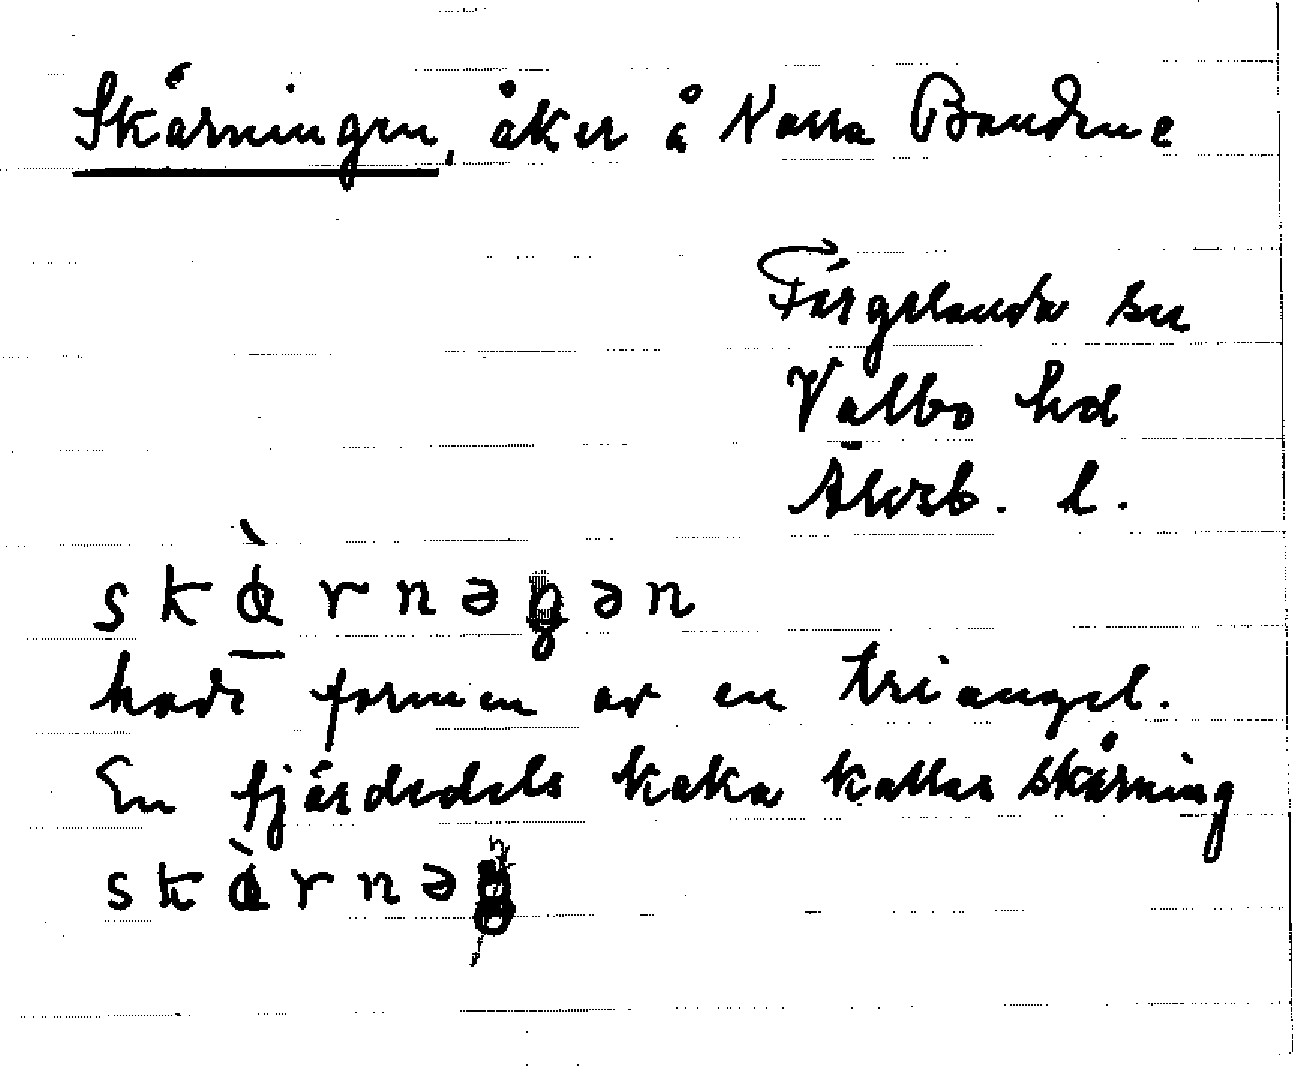 Skårningen, åker å Norra Bondene
Färgelanda sn
Valbo hd
Älvsb. l.
skårnəgən
hade formen av en triangel.
En fjärdedels kaka kallas skårning
skårnəg